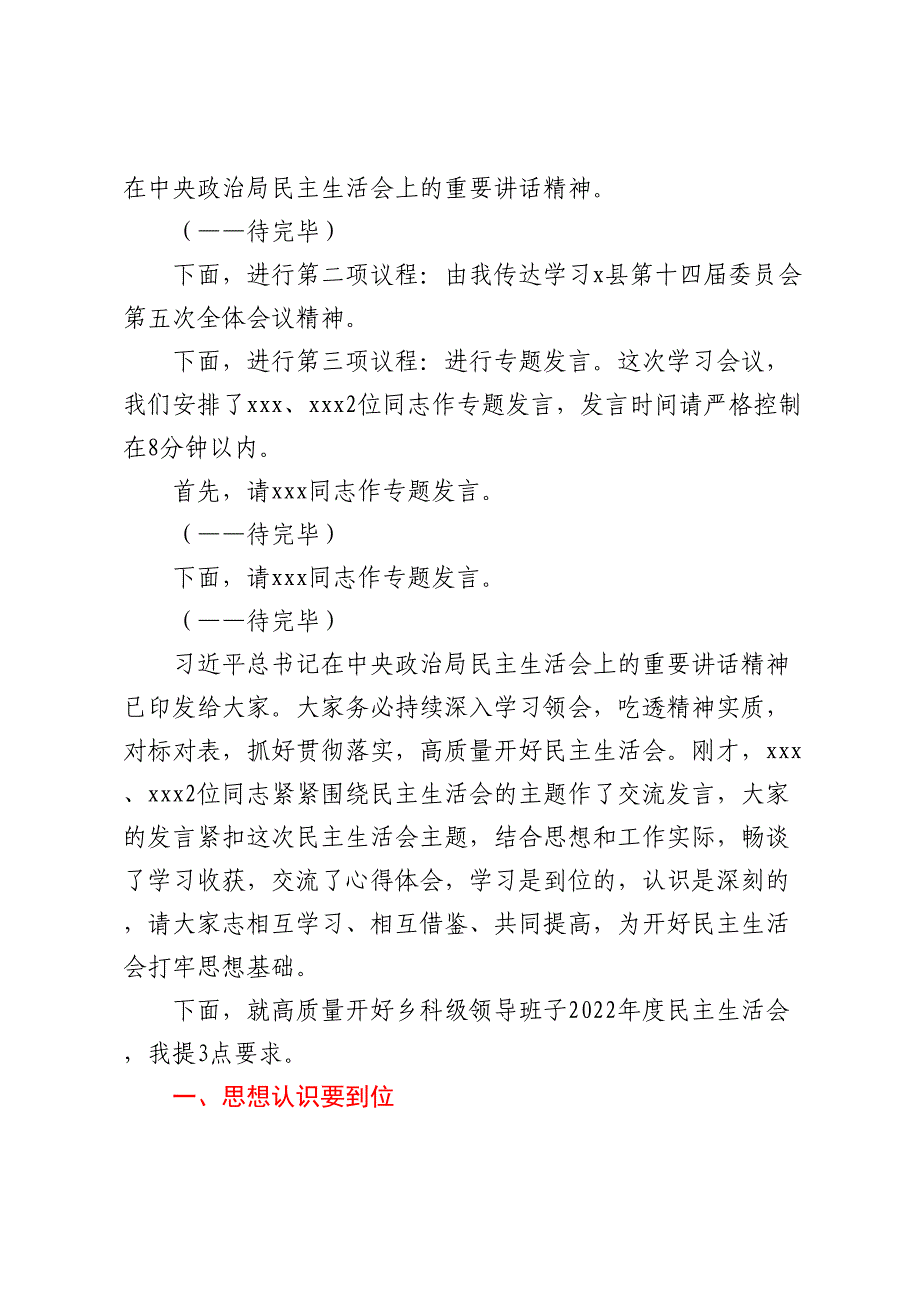 在中央政治局民主生活会上的重要讲话精神。
（——待完毕）
下面，进行第二项议程：由我传达学习x县第十四届委员会
第五次全体会议精神。
下面，进行第三项议程：进行专题发言。这次学习会议，
我们安排了xxx、xxx2位同志作专题发言，发言时间请严格控制
在8分钟以内。
首先，请xxx同志作专题发言。
（——待完毕）
下面，请xxx同志作专题发言。
（——待完毕）
习近平总书记在中央政治局民主生活会上的重要讲话精神
已印发给大家。大家务必持续深入学习领会，吃透精神实质，
对标对表，抓好贯彻落实，高质量开好民主生活会。刚才，xxx
、xxx2位同志紧紧围绕民主生活会的主题作了交流发言，大家
的发言紧扣这次民主生活会主题，结合思想和工作实际，畅谈
了学习收获，交流了心得体会，学习是到位的，认识是深刻的
，请大家志相互学习、相互借鉴、共同提高，为开好民主生活
会打牢思想基础。
下面，就高质量开好乡科级领导班子2022年度民主生活会
，我提3点要求。
一、思想认识要到位